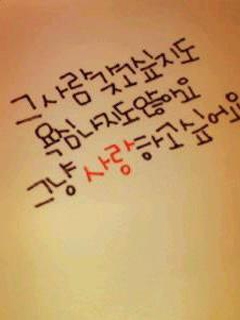 그사람갖고싶지도
욕심나지도않아요
그냥 사랑하고싶어요